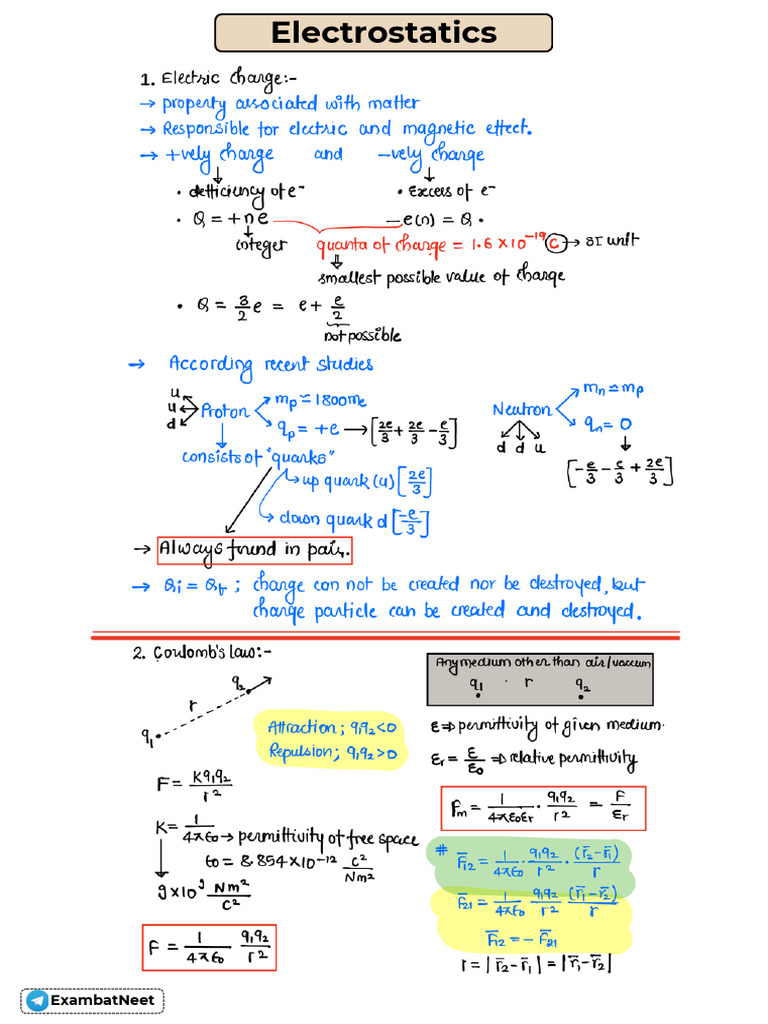 Electrostatics
1. Electric charge:-
→ property associated with matter
→ Responsible for electric and magnetic effect.
→ +vely charge and -vely charge
• defficiency of e⁻ • Excess of e⁻
• Q = +ne -e(n) = Q •
integer quanta of charge = 1.6 × 10⁻¹⁹ C → SI unit
smallest possible value of charge
• Q = 3/2 e = e + e/2
not possible
→ According recent studies
u
u
d
Proton
mp ≃ 1800me
qp = +e → [2e/3 + 2e/3 - e/3]
Neutron
mn ≃ mp
qn = 0
d d u
[-e/3 - e/3 + 2e/3]
consists of "quarks"
→ up quark (u) [2e/3]
→ down quark d [-e/3]
→ Always found in pair.
→ Qi = Qf ; charge can not be created nor be destroyed, but
charge particle can be created and destroyed.
2. Coulomb's law:-
q₁ r q₂
Attraction; q₁q₂<0
Repulsion; q₁q₂>0
F = Kq₁q₂/r²
K = 1/4πε₀ → permittivity of free space
ε₀ = 8.854×10⁻¹² C²/Nm²
9×10⁹ Nm²/C²
F = 1/4πε₀ q₁q₂/r²
Any medium other than air/vaccum
q₁ • r q₂
ε ⇒ permittivity of given medium.
εr = ε/ε₀ ⇒ relative permittivity
Fm = 1/4πε₀εr • q₁q₂/r² = F/εr
# F̄₁₂ = 1/4πε₀ • q₁q₂/r² • (r̄₂-r̄₁)/r
F̄₂₁ = 1/4πε₀ q₁q₂/r² (r̄₁-r̄₂)/r
F̄₁₂ = -F̄₂₁
r = |r̄₂-r̄₁| = |r̄₁-r̄₂|
ExambatNeet